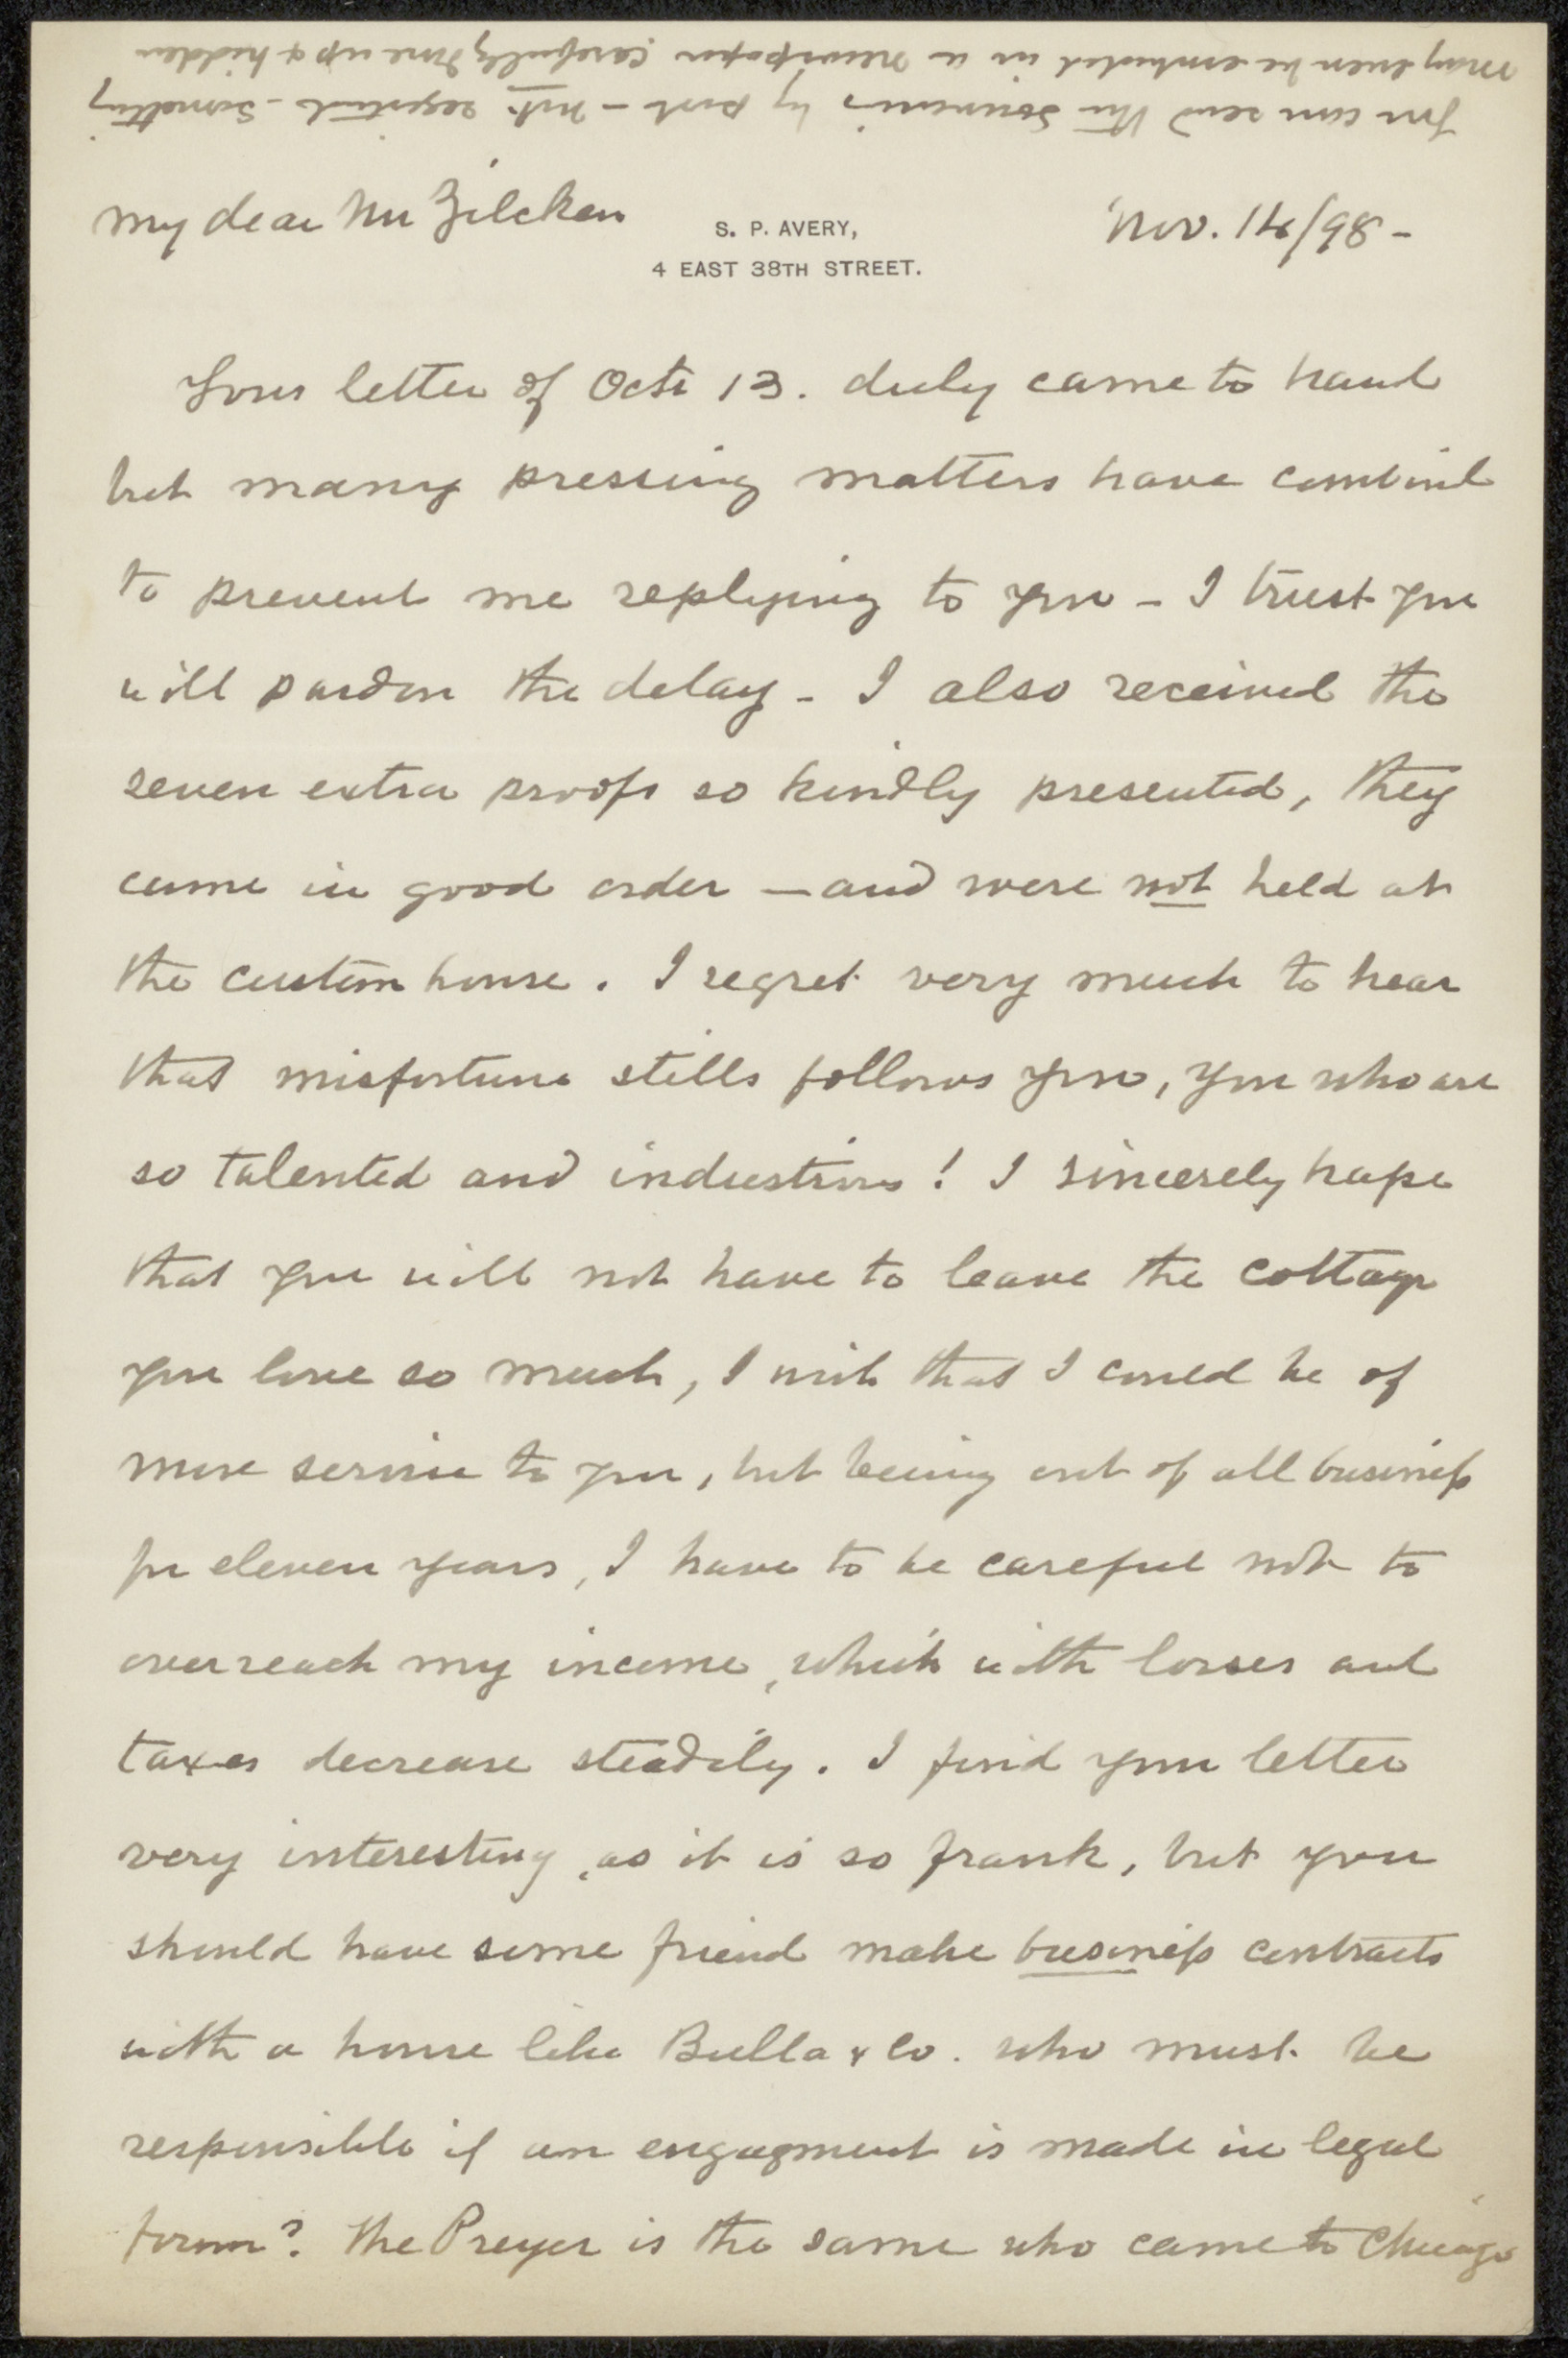 You can send the souvenirs by post - not registered - something
may even be enclosed in a newspaper carefully done up & hidden
My dear Mr Zilcken
S. P. AVERY,
4 EAST 38TH STREET.
Nov. 14/98 -
Your letter of Octr 13. duly came to hand
but many pressing matters have combined
to prevent me replying to you - I trust you
will pardon the delay - I also received the
seven extra proofs so kindly presented, they
came in good order — and were not held at
the custom house. I regret very much to hear
that misfortune stills follows you, you who are
so talented and industrious! I sincerely hope
that you will not have to leave the cottage
you love so much, I wish that I could be of
more service to you, but being out of all business
for eleven years, I have to be careful not to
overreach my income, which with losses and
taxes decrease steadily. I find your letter
very interesting, as it is so frank, but you
should have some friend make business contracts
with a house like Buffa & Co. who must be
responsible if an engagment is made in legal
form? The Preyer is the same who came to Chicago